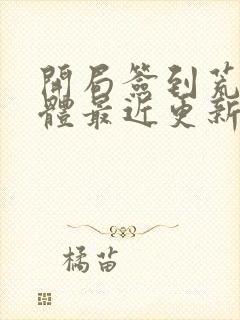 開局簽到荒
體最近更新
橘苗